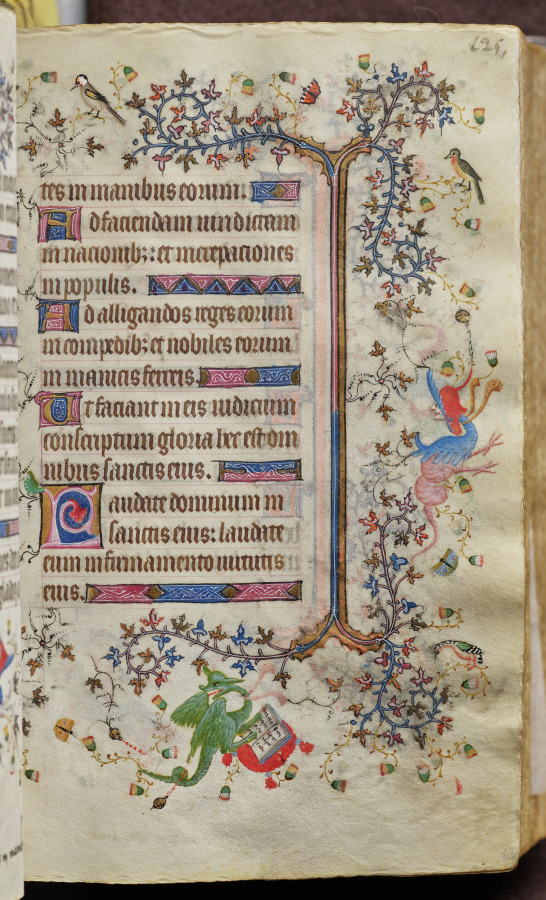 625.
tes in manibus eorum.
Ad faciendam uindictam
in nacionib;: et increpaciones
in populis.
Ad alligandos reges eorum
in compedib; et nobiles eorum
in manicis ferreis.
Ut faciant in eis iudicium
conscriptum gloria hec est om
nibus sanctis eius.
Laudate dominum in
sanctis eius: laudate
eum in firmamento uirtutis
eius.